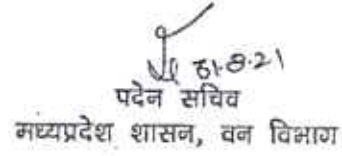 31.8.21
पदेन सचिव
मध्यप्रदेश शासन, वन विभाग